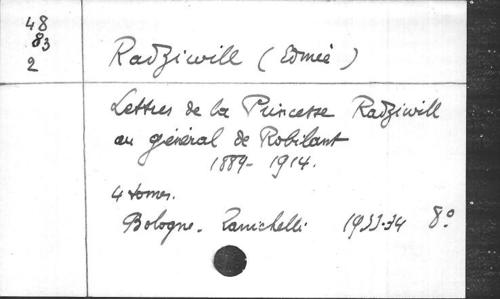 48
83
2
Radziwill (Edmée)
Lettres de la Princesse Radziwill
au général de Robilant
1889-1914.
4 tomes.
Bologne. Zanichelli 1933-34 8°